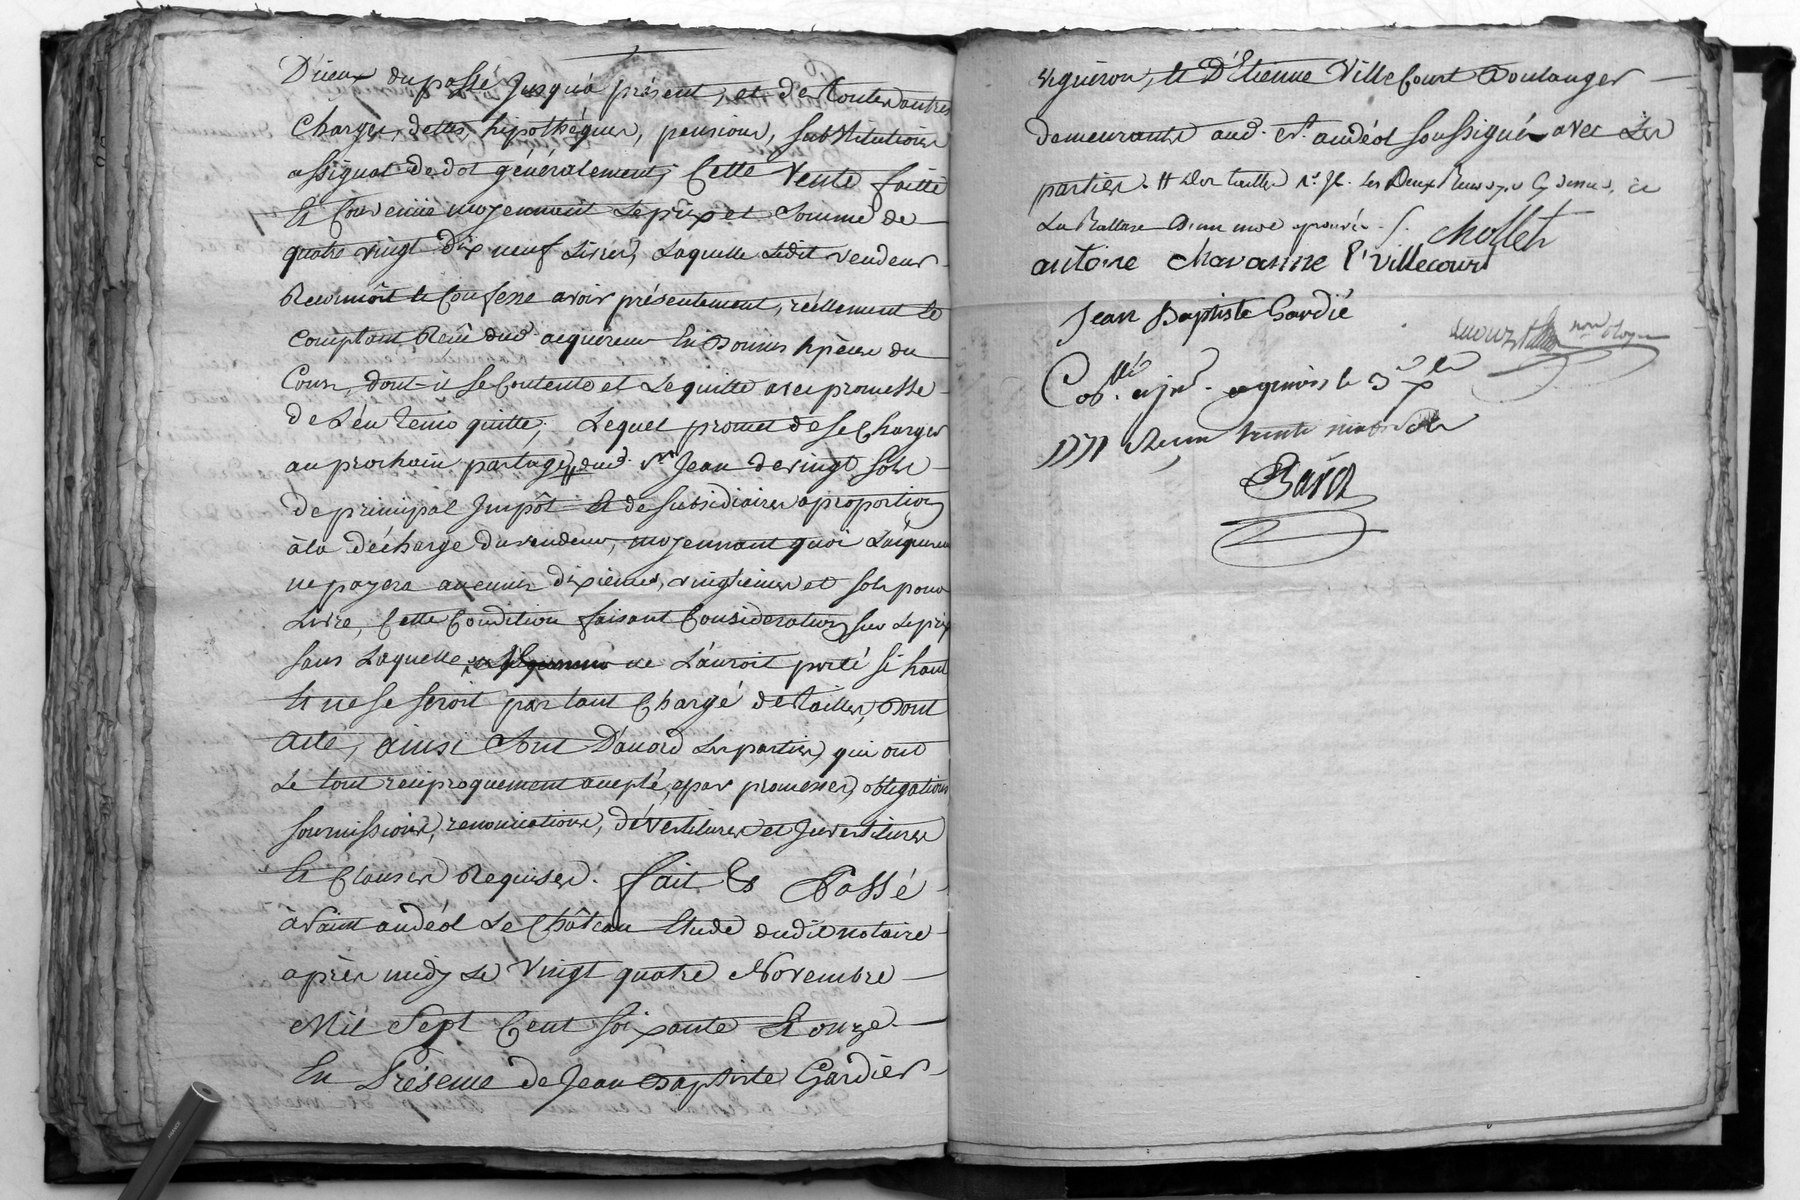 D'iceux du passé Jusqu'à présent, et de toutes autres
Charges, dettes, hipothéques, pensions, substitutions
assignat de dot généralement; Cette Vente faitte
Et Convenüe moyennant Le prix et Somme de
quatre vingt dix neuf Livres, Laquelle Ledit vendeur
Reconnoit et Confesse avoir présentement, réellement et
comptant Reçû dud. acquéreur En Bonnes Espèces du
Cours, dont il se Contente et Le quitte avec promesse
de L'en tenir quitte; Lequel promet de se Charger
au prochain partage, dud. St. Jean de vingt sols
de principal Impôt Et de subsidiaires a proportion
à la décharge du vendeur, moyennant quoi L'acquereur
ne payera aucuns dixièmes, vingtiemes et sols pour
Livre, Cette Condition faisant Consideration sur Le prix
sans Laquelle ne L'auroit porté si haut
Et ne se seroit pas tant Chargé de tailles, Dont
acte, ainsi Sont D'accord Les parties, qui ont
Le tout reciproquement accepté, par promesses, obligations
soumissions, renonciations, dévestitures et Investitures
Et Clauses Requises. fait Et Passé
a Saint andéol Le Château Etude dudit notaire
après midy Le Vingt quatre Novembre
Mil Sept Cent soixante Et onze
En Présence de Jean Baptiste Gardier
vigneron, et D'Etienne VilleCourt Boulanger
demeurants aud. St. andéol soussignés avec Les
parties. Les Deux
La Rature D'un mot aprouvée. Chollet
antoine Chavanne E. villecourt
Jean Baptiste Gardié
Con.llé a givors le 3 Xbre
1771 Reçu trente